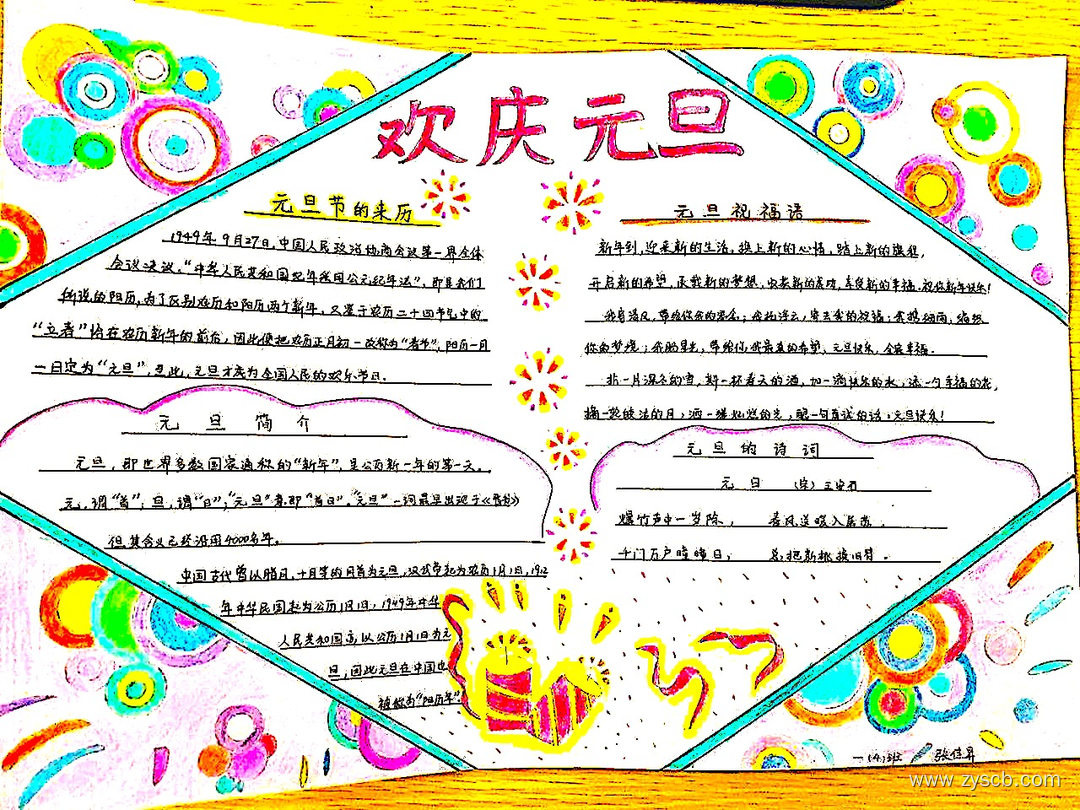 欢庆元旦
元旦节的来历
1949年9月27日,中国人民政治协商会议第一界全体
会议决议,"中华人民共和国纪年采用公元纪年法",即是我们
所说的阳历,为了区别农历和阳历两个新年,又鉴于农历二十四节气中的
"立春"恰在农历新年的前后,因此便把农历正月初一改称为"春节",阳历一月
一日定为"元旦",至此,元旦才成为全国人民的欢乐节日.
元旦简介
元旦,即世界多数国家通称的"新年",是公历新一年的第一天。
元,谓"首";旦,谓"日";"元旦"意即"首日"."元旦"一词最早出现于《晋书》
但其含义已经沿用4000多年.
中国古代曾以腊月,十月等的月首为元旦,汉武帝起为农历1月1日,1912
年中华民国起为公历1月1日,1949年中华
人民共和国亦以公历1月1日为元
旦,因此元旦在中国也
被称为"阳历年".
元旦祝福语
新年到,迎来新的生活,换上新的心情,踏上新的旅程,
开启新的希望,承载新的梦想,收获新的成功,享受新的幸福,祝你新年快乐!
我寄清风,带给你我的思念;我托浮云,寄去我的祝福;我携细雨,缩短
你我梦境;我盼星光,带给你我最真的希望,元旦快乐,全家幸福.
折一片深冬的雪,斟一杯春天的酒,加一滴快乐的水,添一勺幸福的花,
摘一轮皎洁的月,洒一缕灿烂的光,酿一句真诚的话:元旦快乐!
元旦的诗词
元日 (宋) 王安石
爆竹声中一岁除, 春风送暖入屠苏.
千门万户曈曈日, 总把新桃换旧符.
一(4)班 张佳昇
www.zyscb.com